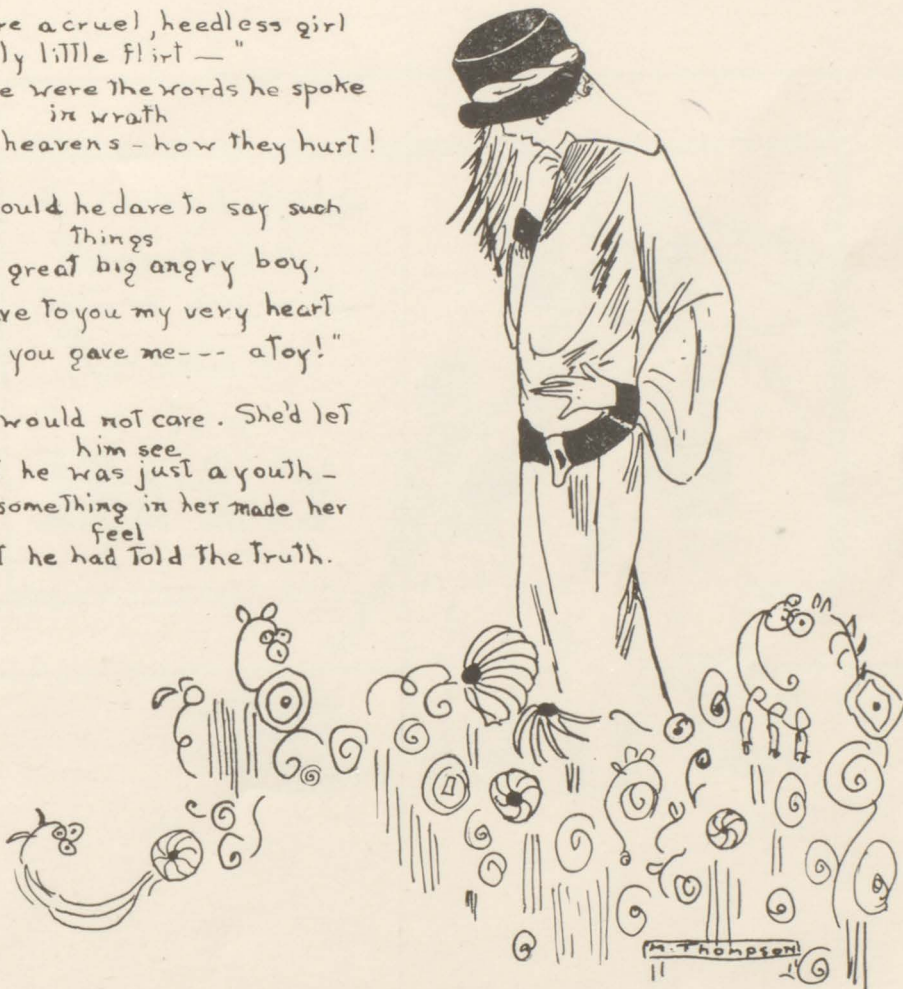 re a cruel, heedless girl
ly little flirt — "
e were the words he spoke
in wrath
heavens - how they hurt!
ould he dare to say such
things
great big angry boy,
ve to you my very heart
you gave me --- a toy!"
would not care. She'd let
him see
he was just a youth -
something in her made her
feel
t he had told the truth.
M. Thompson